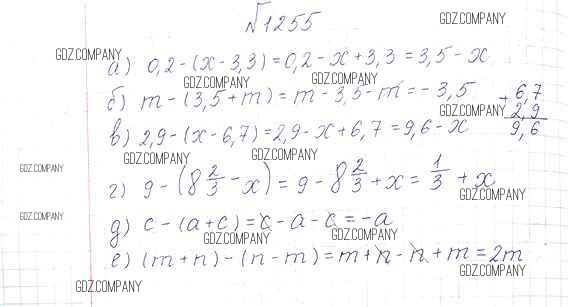 №1255
GDZ.COMPANY
GDZ.COMPANY
а) 0,2-(x-3,3)=0,2-x+3,3=3,5-x
GDZ.COMPANY GDZ.COMPANY
б) m-(3,5+m)=m-3,5-m=-3,5
+ 6,7
2,9
9,6
GDZ.COMPANY
в) 2,9-(x-6,7)=2,9-x+6,7=9,6-x
GDZ.COMPANY GDZ.COMPANY
GDZ.COMPANY
г) 9-(8 2/3-x)=9-8 2/3+x=1/3+x
GDZ.COMPANY
GDZ.COMPANY
д) c-(a+c)=c-a-c=-a
GDZ.COMPANY GDZ.COMPANY
е) (m+n)-(n-m)=m+n-n+m=2m
GDZ.COMPANY
GDZ.COMPANY